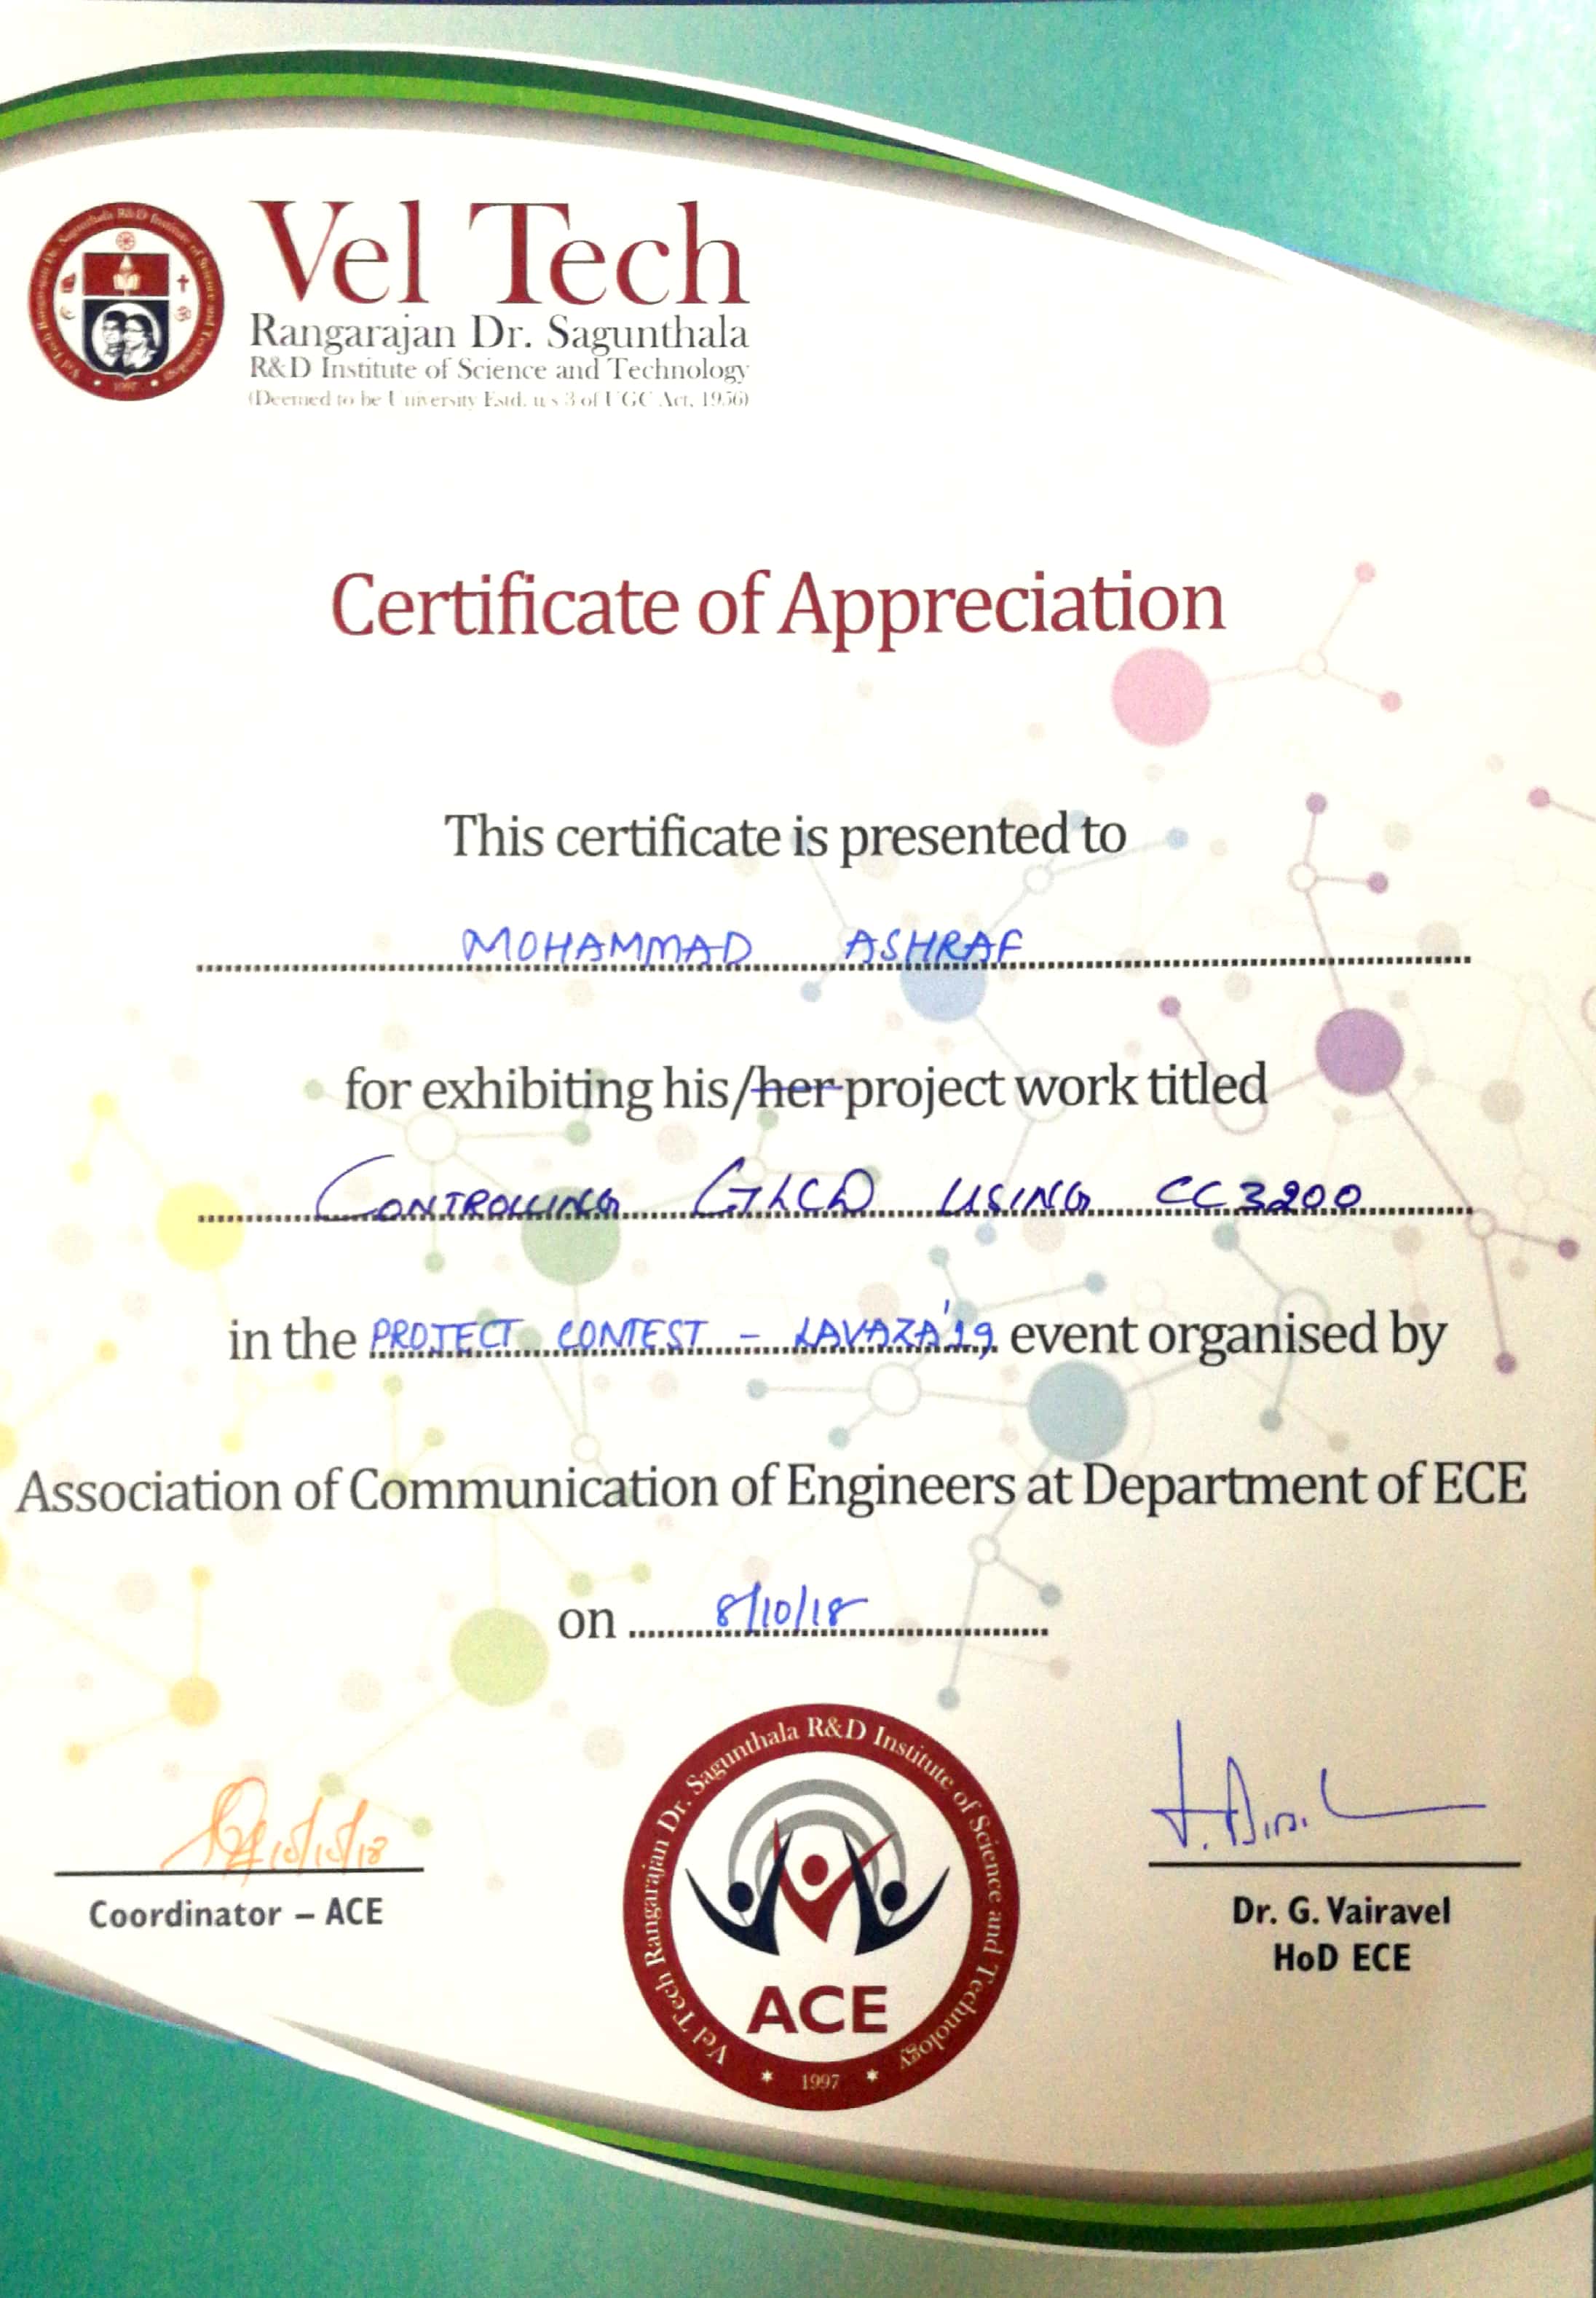 Vel Tech
Rangarajan Dr. Sagunthala
R&D Institute of Science and Technology
(Deemed to be University Estd. u/s 3 of UGC Act, 1956)
Certificate of Appreciation
This certificate is presented to
MOHAMMAD ASHRAF
for exhibiting his/her project work titled
CONTROLLING GLCD USING CC3200
in the PROJECT CONTEST - LAVAZA'19 event organised by
Association of Communication of Engineers at Department of ECE
on 8/10/18
10/10/18
Coordinator – ACE
Vel Tech Rangarajan Dr. Sagunthala R&D Institute of Science and Technology
ACE
* 1997 *
Dr. G. Vairavel
HoD ECE